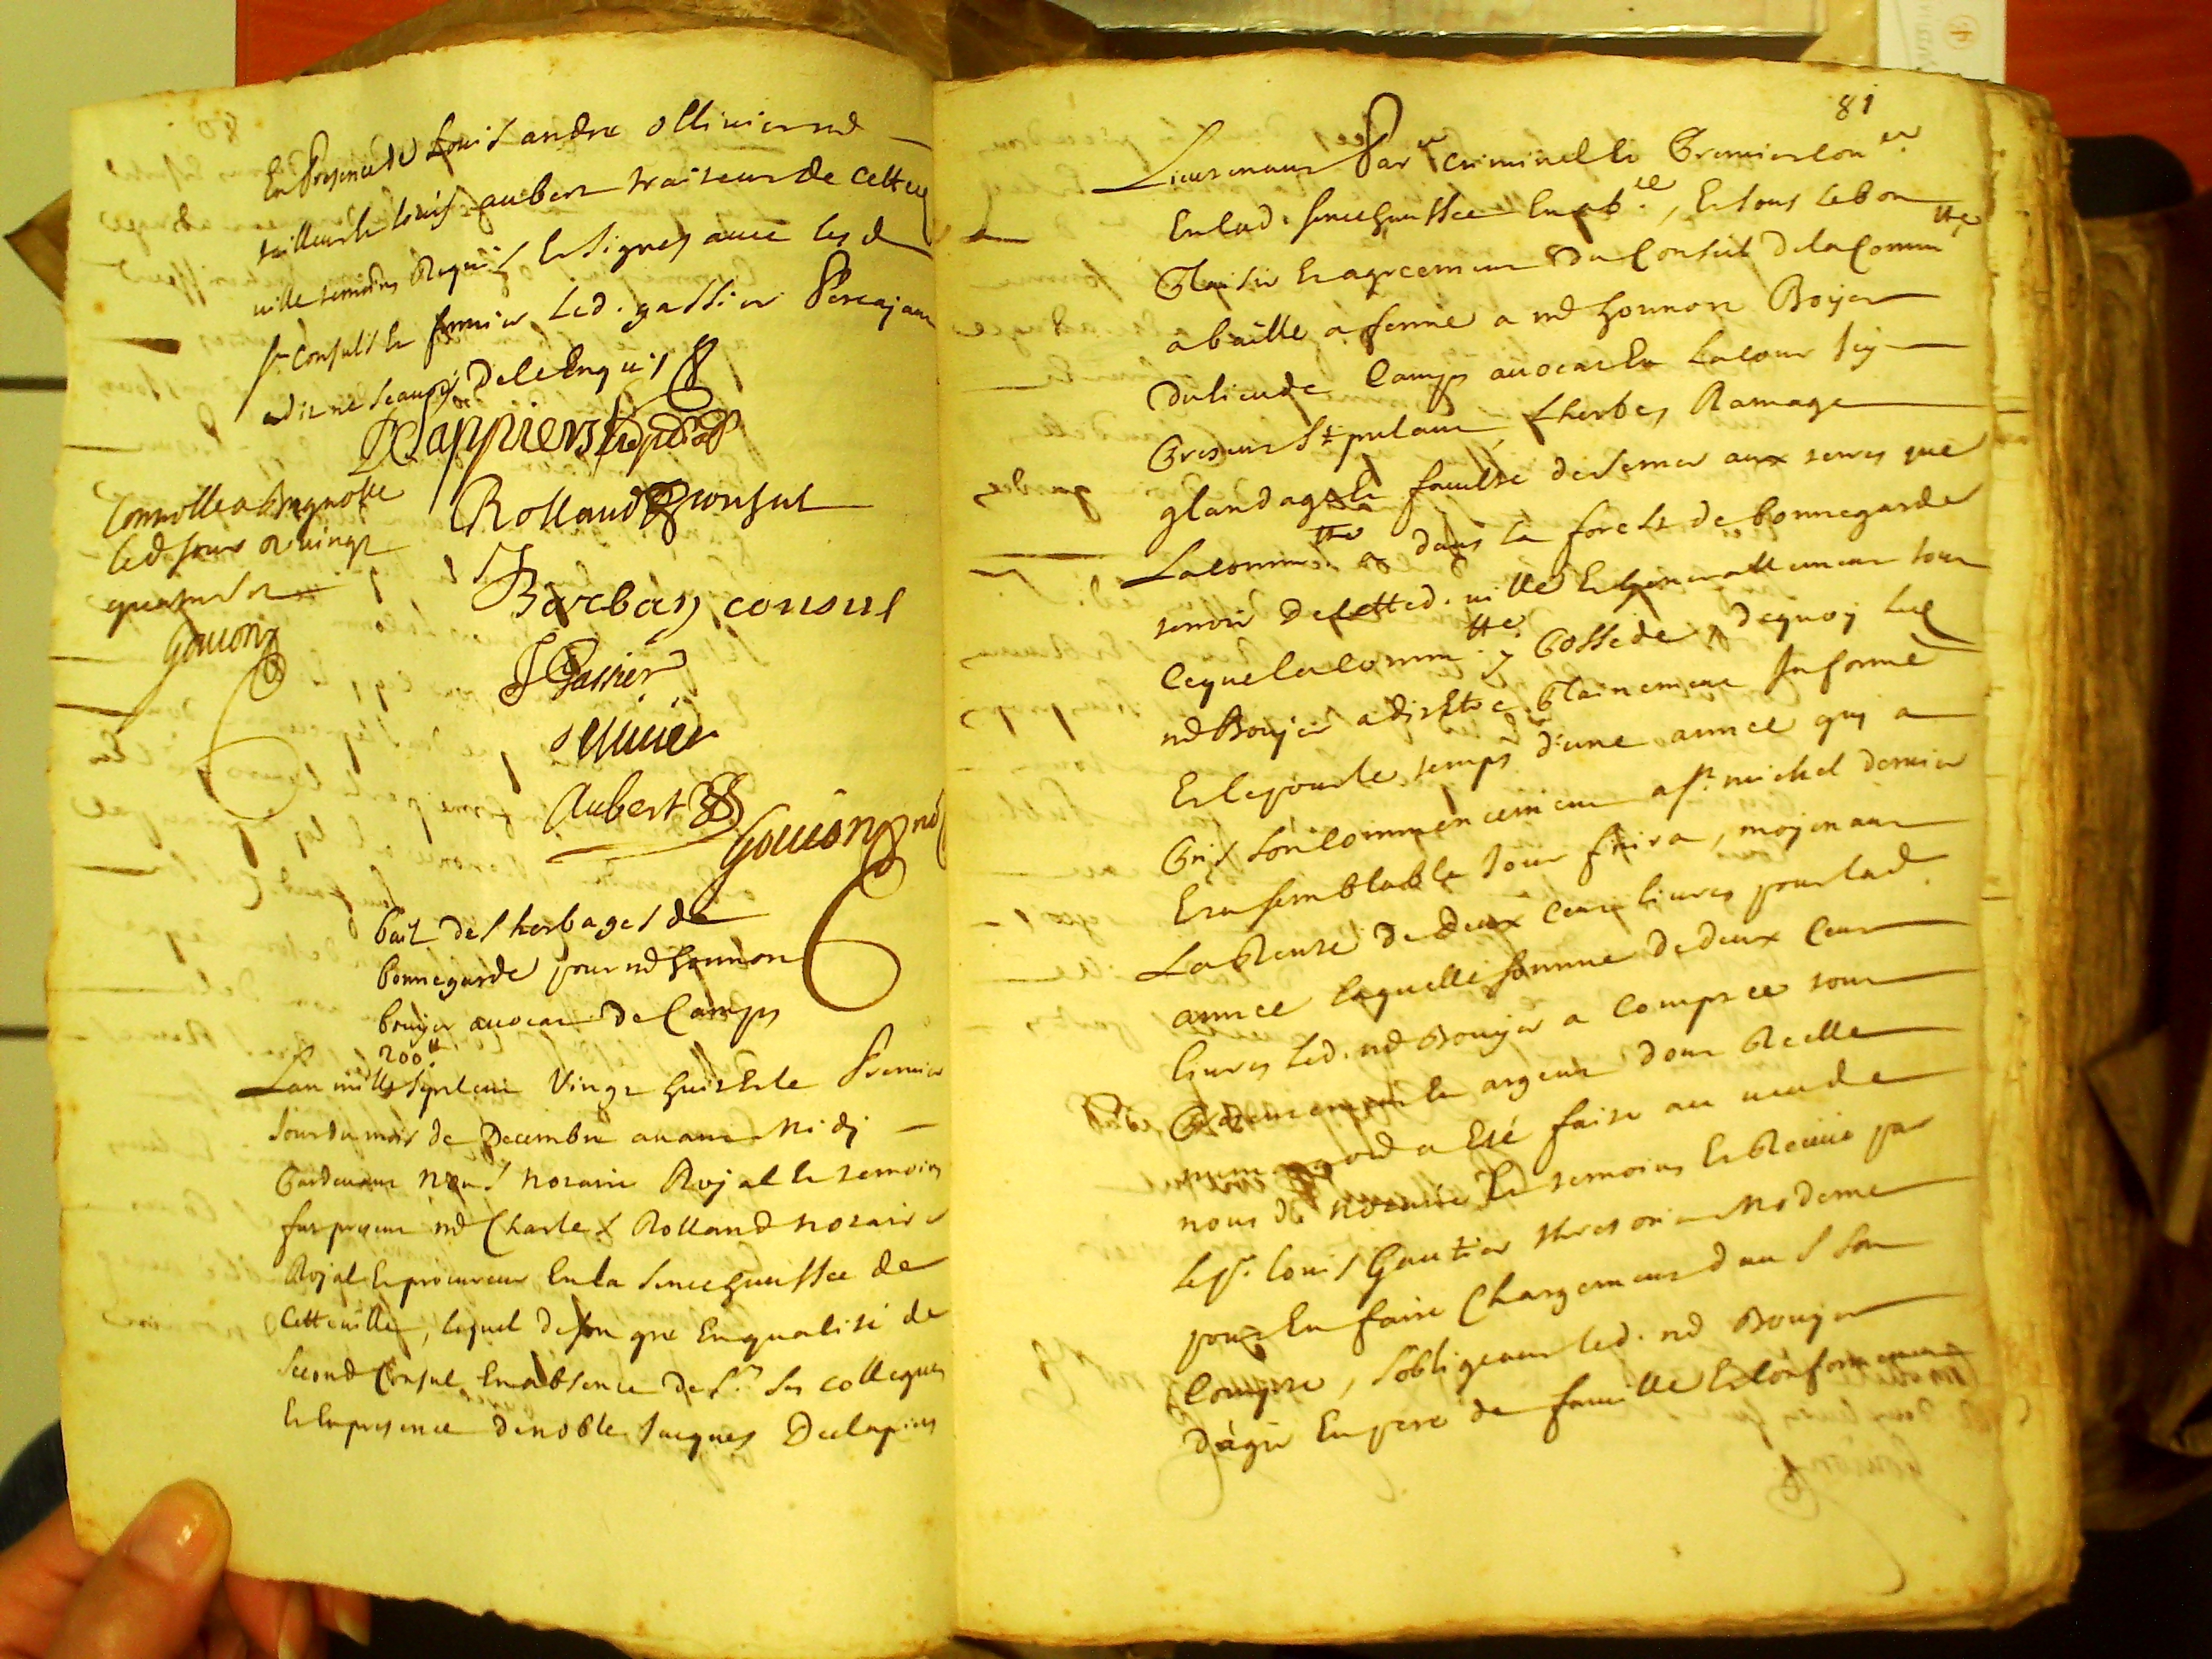 En Presence de Louis andre ollivier md
tailleur et louis aubert traiteur de cette
ville temoins Requis Et Signes avec les d
srs Consuls et fermier led. gassier
a dit ne scavoir de ce Enquis
Delappierre
Rolland consul
Barbay consul
J Gassier
ollivier
Aubert
Gouion no
Conrolle a Brignolle
led jour
Gouion
bail des herbages de
bonnegarde pour md honnore
bouyer avocat de Camps
200tt
Lan mille sept cent Vingt huit Et le Premier
Jour du mois de Decembre avant Midy
Pardevant Nous Notaire Royal et temoins
fut present md Charles Rolland notaire
Royal Et procureur En la Senechaussee de
Cette ville, lequel de son gre En qualité de
Second Consul En absence de Srs Ses collegues
Et En presence de noble Jacques Delapierre
81
Lieutenant Parer criminel et Premier conler
En lad. senechaussee, Et sous le bon
Plaisir Et agreement du Conseil de la Commtte
a baillé a ferme a md honnore Boyer
du lieu de Camps avocat En la cour icy
Present Stipulant, Lherbes Ramage
glandage Et faculté de semer aux terres que
La commtté a dans la forest de bonnegarde
terroir de cetted. ville Et generallement tout
ce que la commtté y Possede, de quoy led
md Bouyer a dit Etre Plainement Informé
Et ce pour le temps d'une annee quy a
Pris son commencement a st michel dernier
Et a semblable Jour finira, moyenant
La Rente de deux cent livres pour lad.
annee laquelle somme de deux Cent
livres led. md Bouyer a Compté tout
Presentement En argent dont Reelle
a Eté faite au veu de
nous dt notaire Et temoins Et Retiré par
le sr. louis Gautier thresorier Moderne
pour En faire Chargement dans son
Compte, s'obligeant led. md Bouyer
d'agir En pere de famille Et conformement